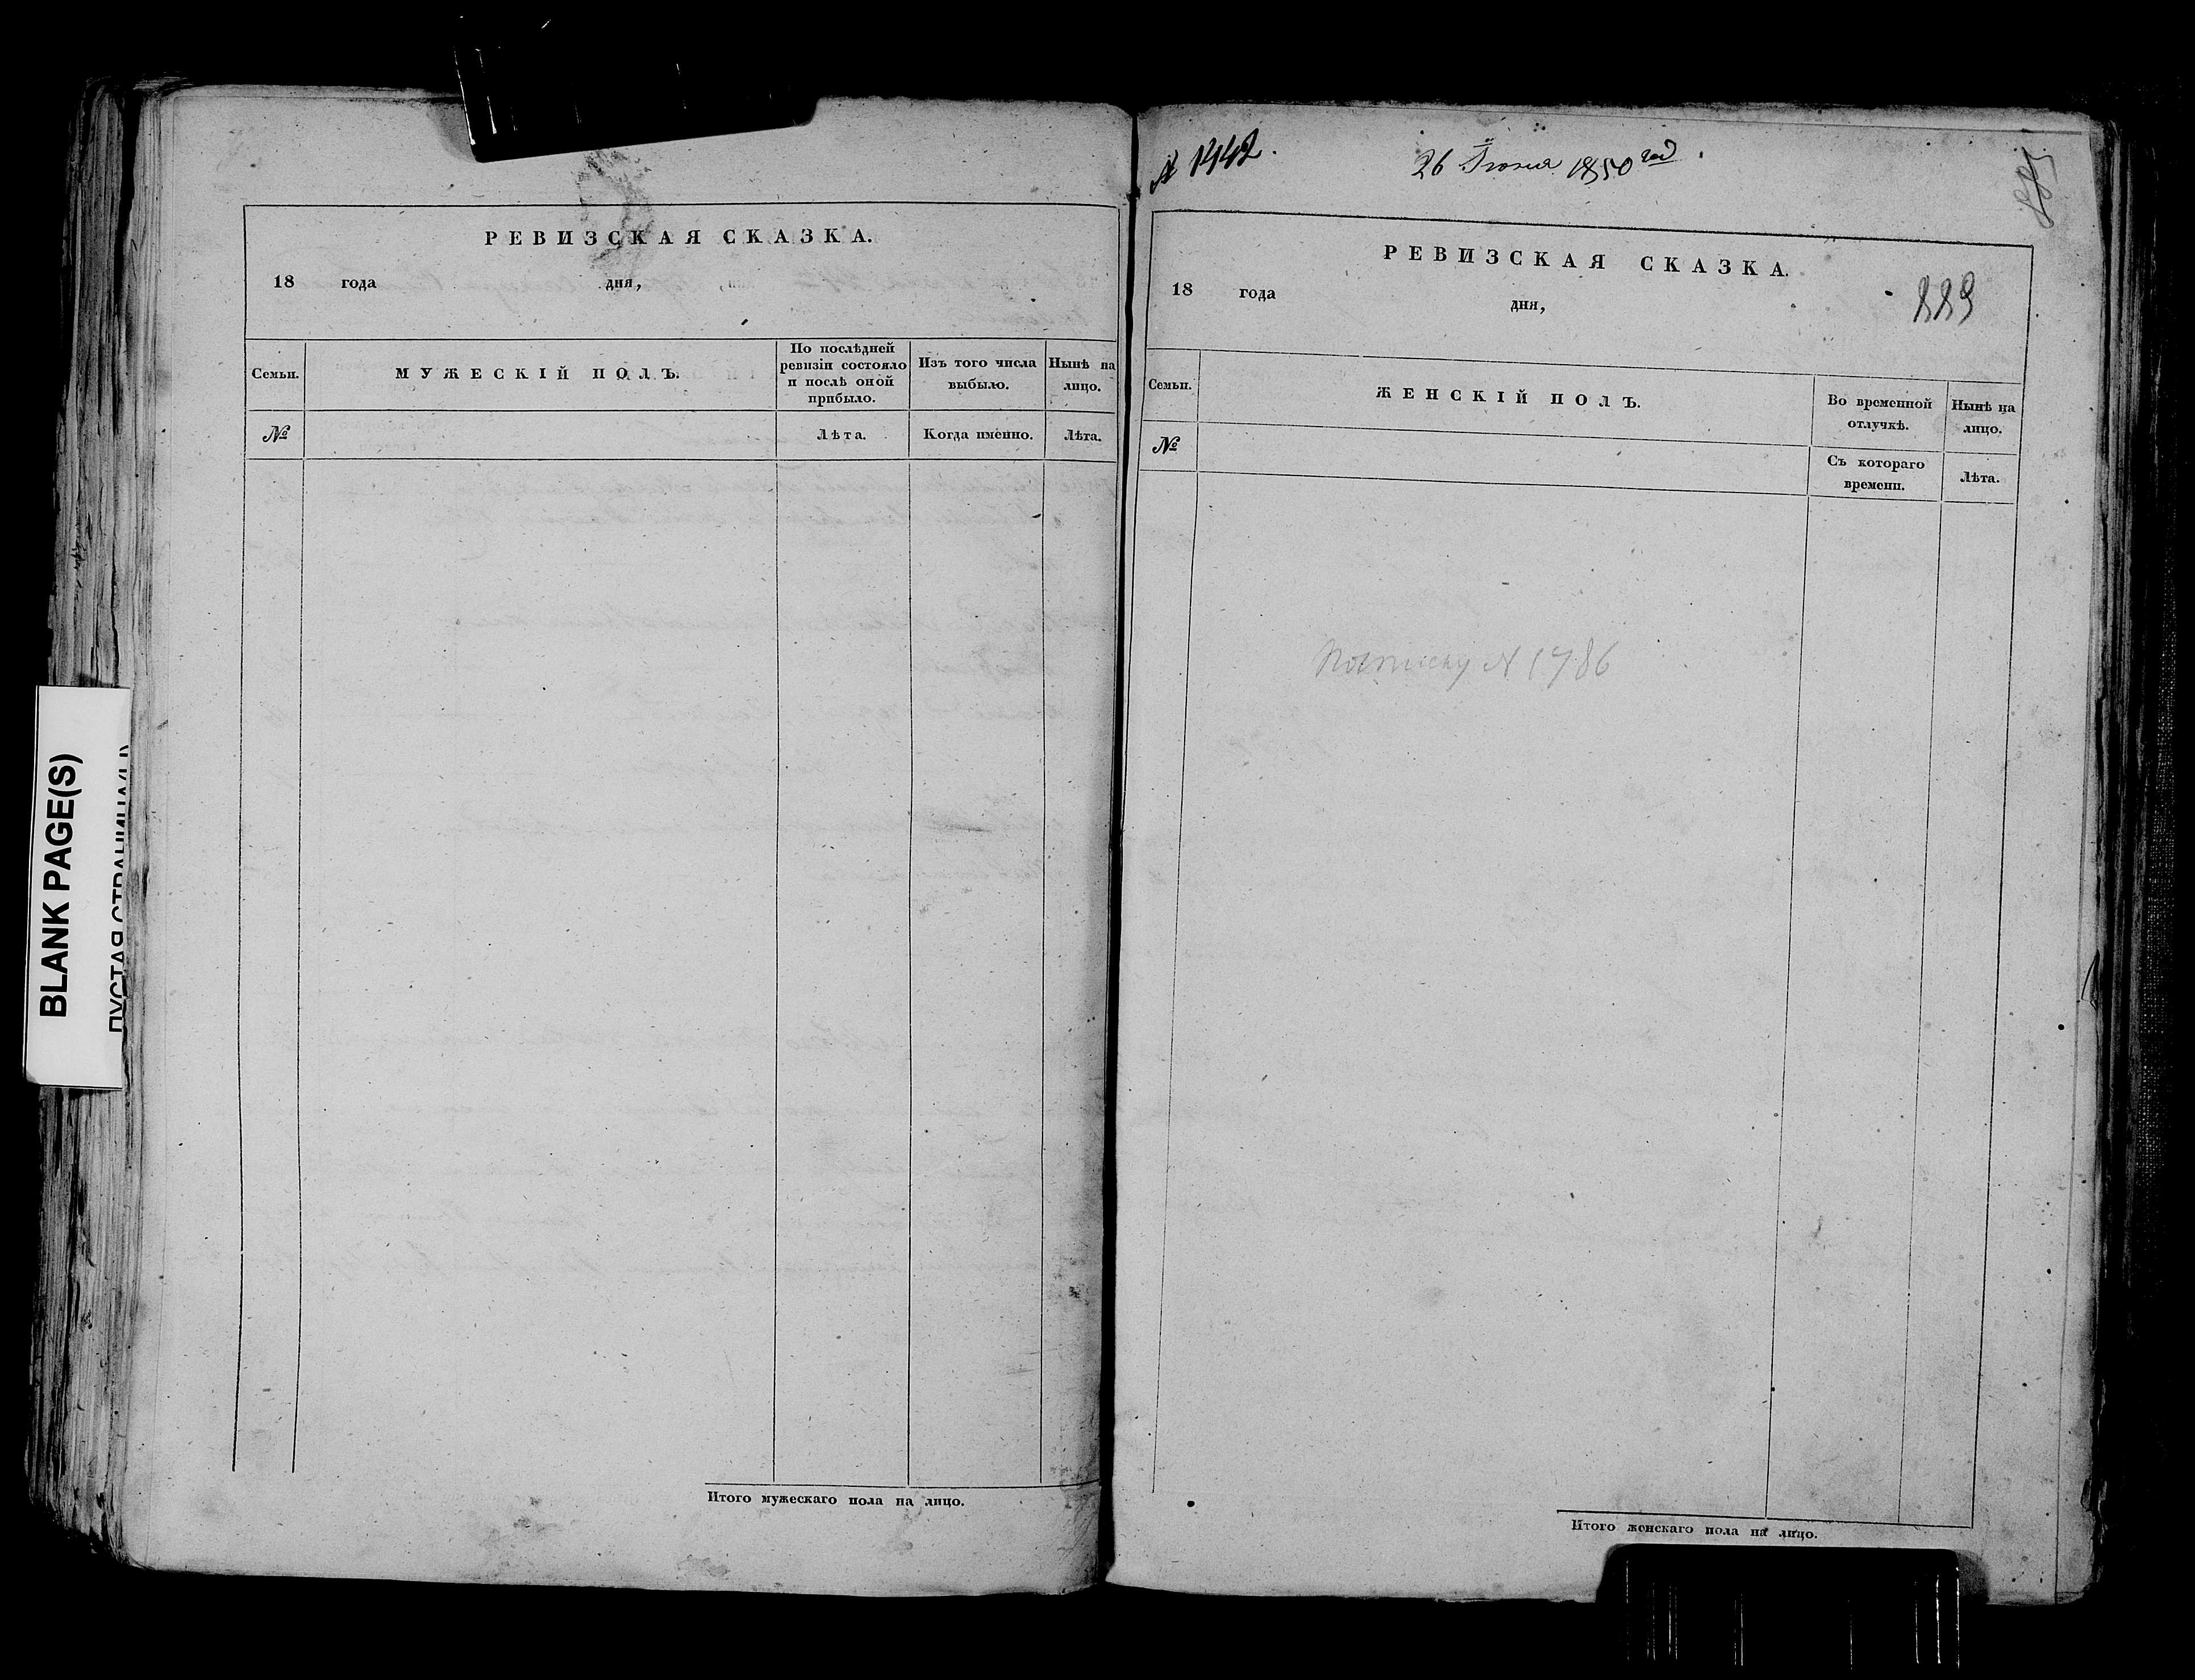 BLANK PAGE(S)
ПУСТАЯ СТРАНИЦА(Ы)
РЕВИЗСКАЯ СКАЗКА.
18 года дня,
Семьи.
МУЖЕСКІЙ ПОЛЪ.
По послѣдней
ревизіи состояло
и послѣ оной
прибыло.
Изъ того числа
выбыло.
Нынѣ на
лицо.
№
Лѣта.
Когда именно.
Лѣта.
Итого мужескаго пола на лицо.
№ 1442.
26 Іюня 1850 год
РЕВИЗСКАЯ СКАЗКА.
18 года дня,
223
Семьи.
ЖЕНСКІЙ ПОЛЪ.
Во временной
отлучкѣ.
Нынѣ на
лицо.
№
Съ котораго
времени.
Лѣта.
№ 1786
Итого женскаго пола на лицо.